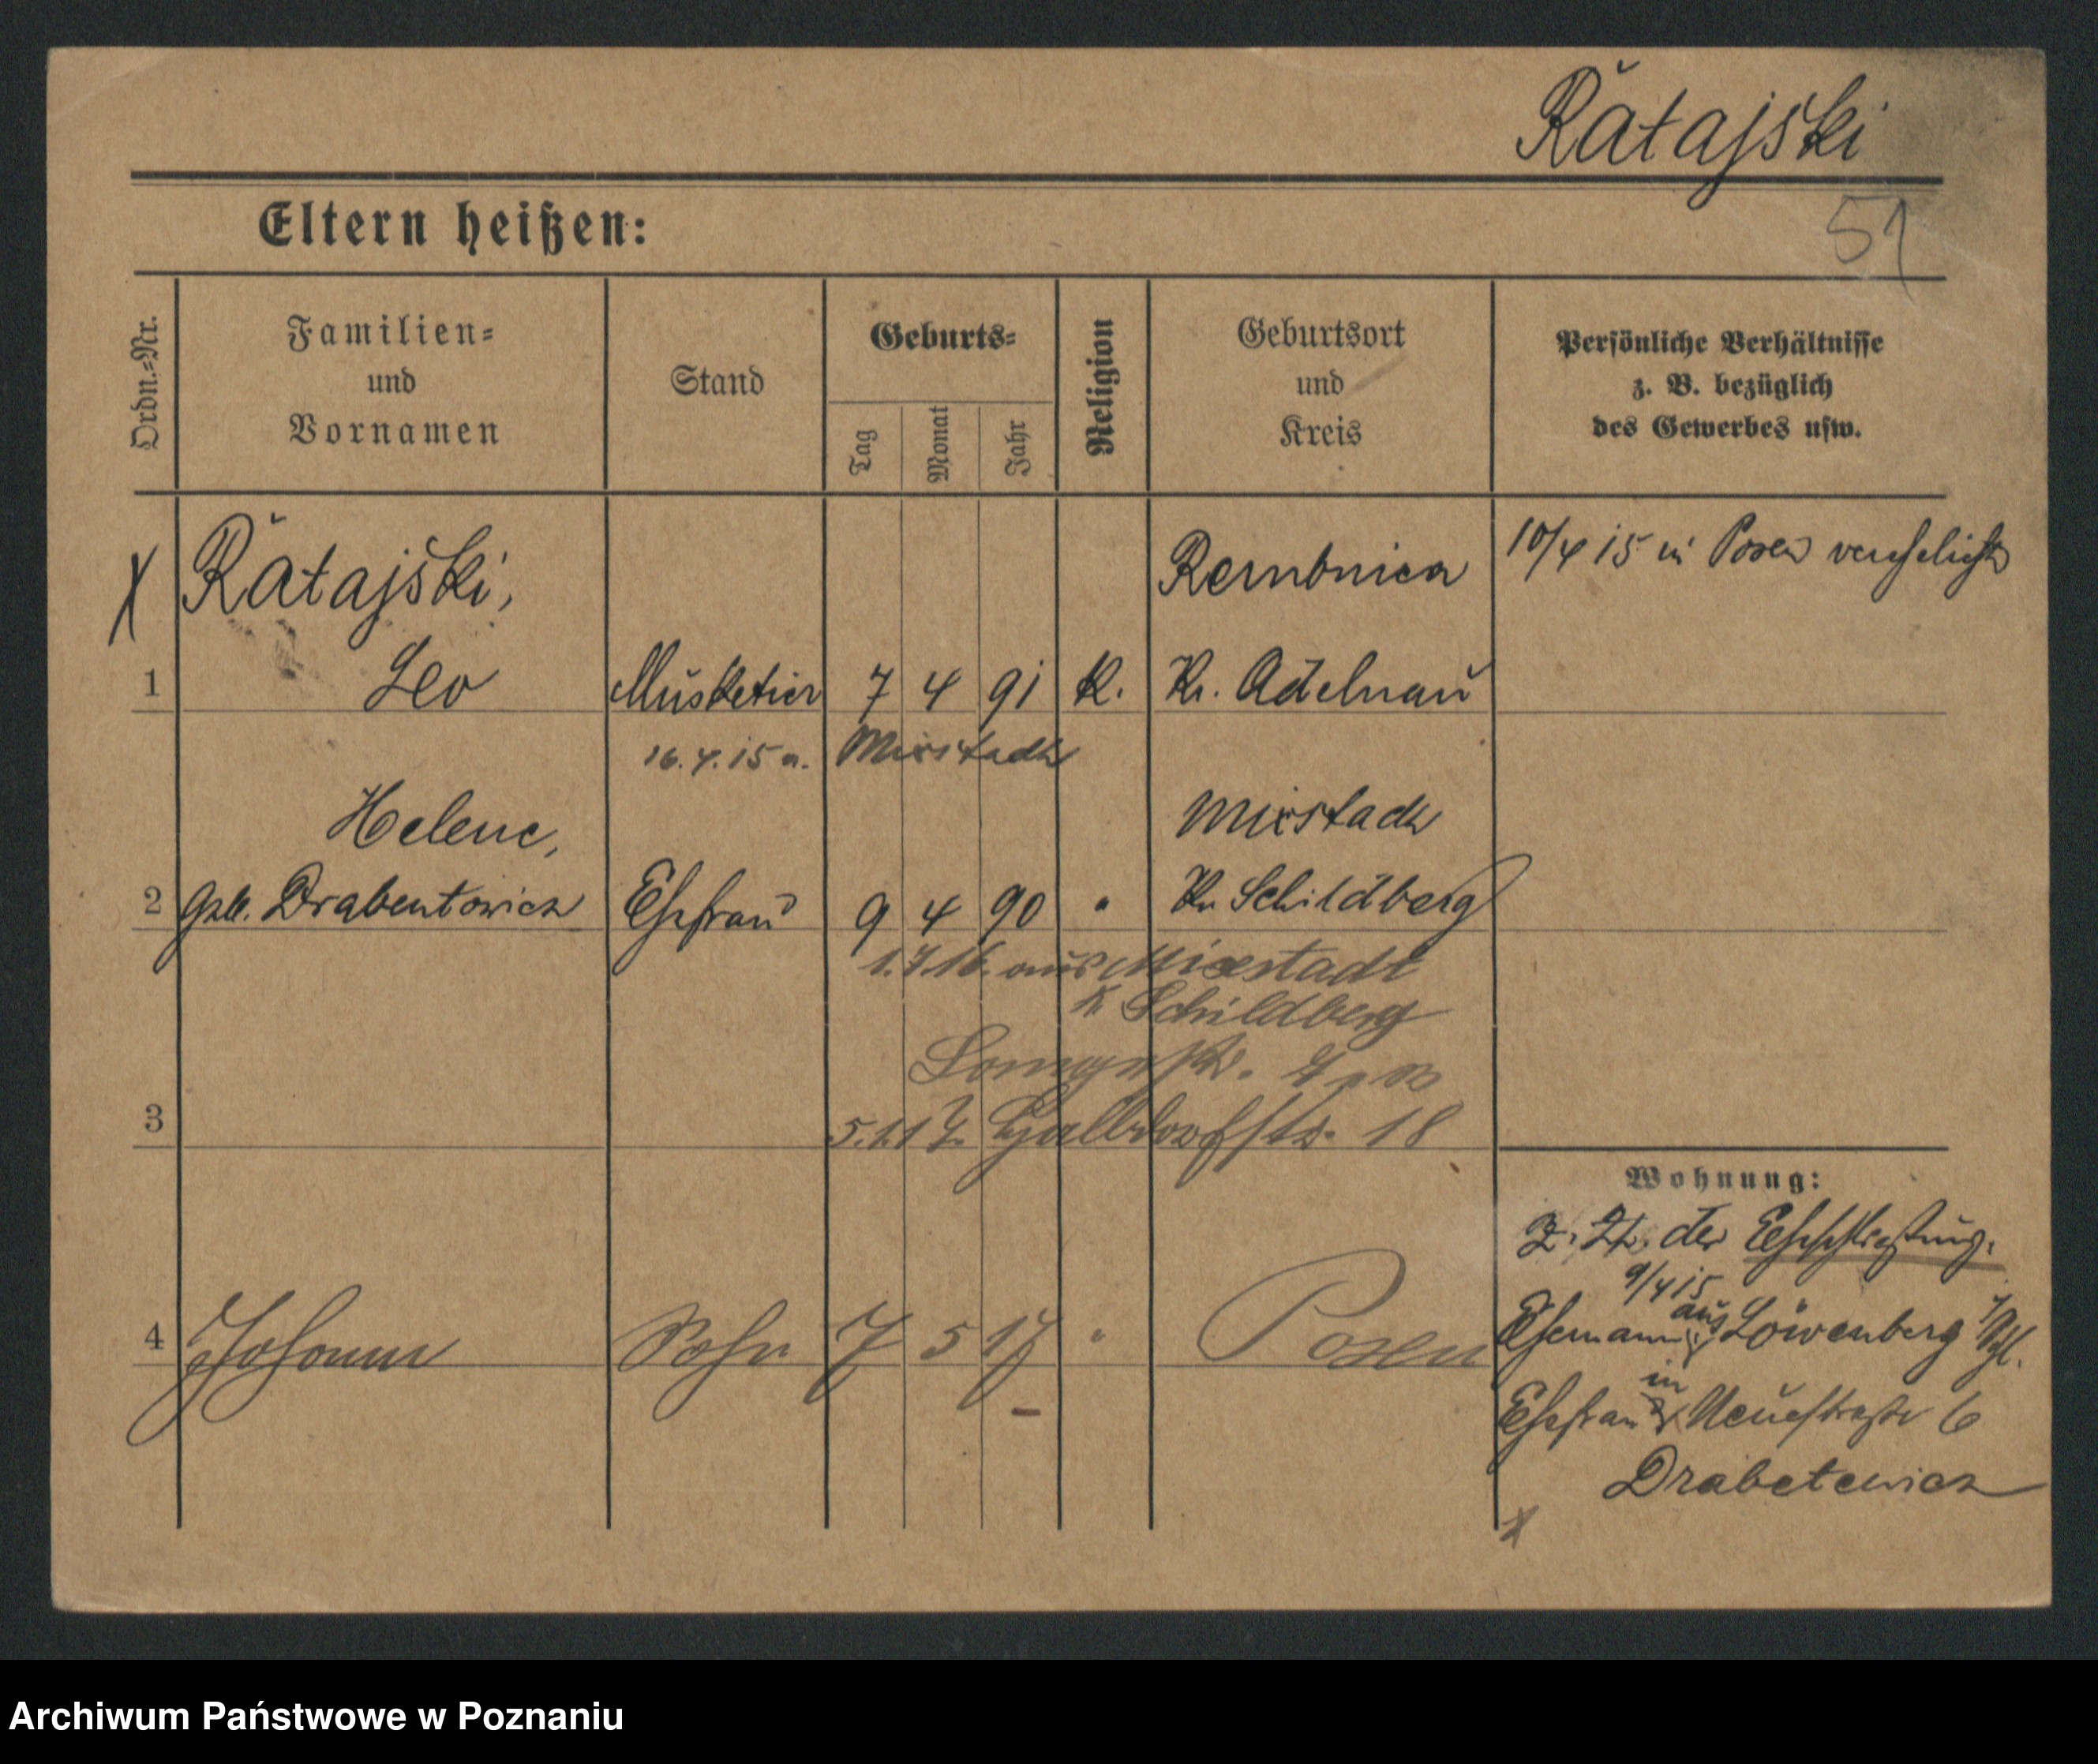 Ratajski
51
Eltern heißen:
Ordn.-Nr.
Familien-
und
Vornamen
Stand
Geburts-
Tag
Monat
Jahr
Religion
Geburtsort
und
Kreis
Persönliche Verhältnisse
z. B. bezüglich
des Gewerbes usw.
Ratajski,
Rembnica
10/4 15 in Posen verehelicht
1 Leo Musketier 7 4 91 K. Kr. Adelnau
16.4.15 n. Mixstadt
Helene,
Mixstadt
2 geb. Drabentowicz Ehefrau 9 4 90 " Kr. Schildberg
1.7.16. aus Mixstadt
K Schildberg
3 5.1.17. 18
Wohnung:
Z. Zt. der Eheschließung.
9/4 15
Ehemann aus Löwenberg
4 Johann Sohn 7 5 17 " Posen
in
Ehefrau Neuestraße 6
Drabetewicz
Archiwum Państwowe w Poznaniu